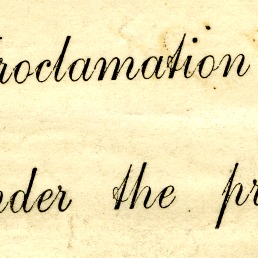 roclamation
nder the pr